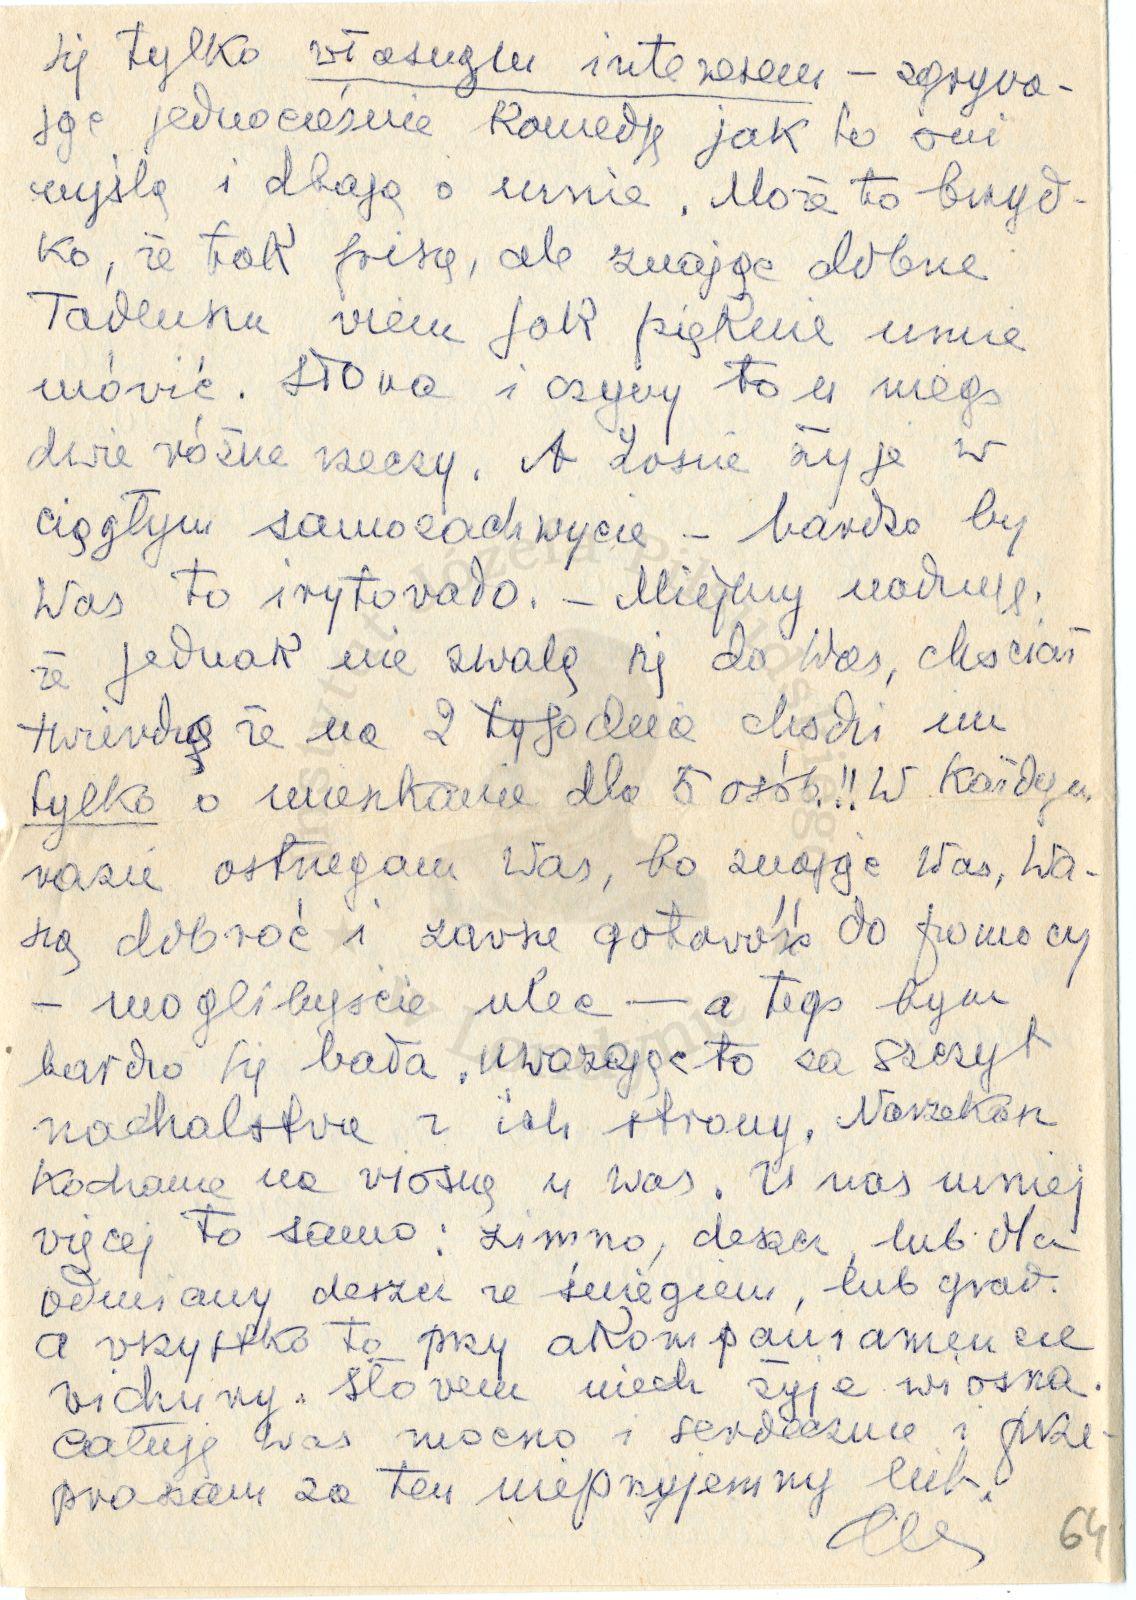 się tylko własnym interesem – zgrywa-
jąc jednocześnie Komedję jak to oni
myślą i dbają o mnie. Może to bzyd-
ko, że tak piszę, ale znając dobrze
Tadeusza wiem jak pięknie umie
mówić. Słowa i czyny to u niego
dwie różne rzeczy. A Zosia żyje w
ciągłym samozachwycie – bardzo by
Was to irytowało. – Miejmy nadzieję,
że jednak nie zwalą się do Was, chociaż
twierdzą że na 2 tygodnie chodzi im
tylko o mieszkanie dla 5 osób!! W każdym
razie ostrzegam Was, bo znając Was, Wa-
szą dobroć i zawsze gotowość do pomocy
– moglibyście ulec — a tego bym
bardzo się bała, uważając to za szczyt
nachalstwa z ich strony. Narzekasz
Kochana na wiosnę u Was. U nas mniej
więcej to samo: zimno, deszcz, lub dla
odmiany deszcz ze śniegiem, lub grad.
a wszystko to przy akompaniamencie
wichury. Słowem niech żyje wiosna.
Całuję Was mocno i serdecznie i prze-
praszam za ten nieprzyjemny list.
64
Instytut Józefa Piłsudskiego
w Londynie